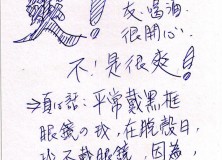 友喝酒
很開心.
不!是很爽!
⇒頁話:平常戴黑框
眼鏡の我,在脫殼日,
我不戴眼鏡,因為,